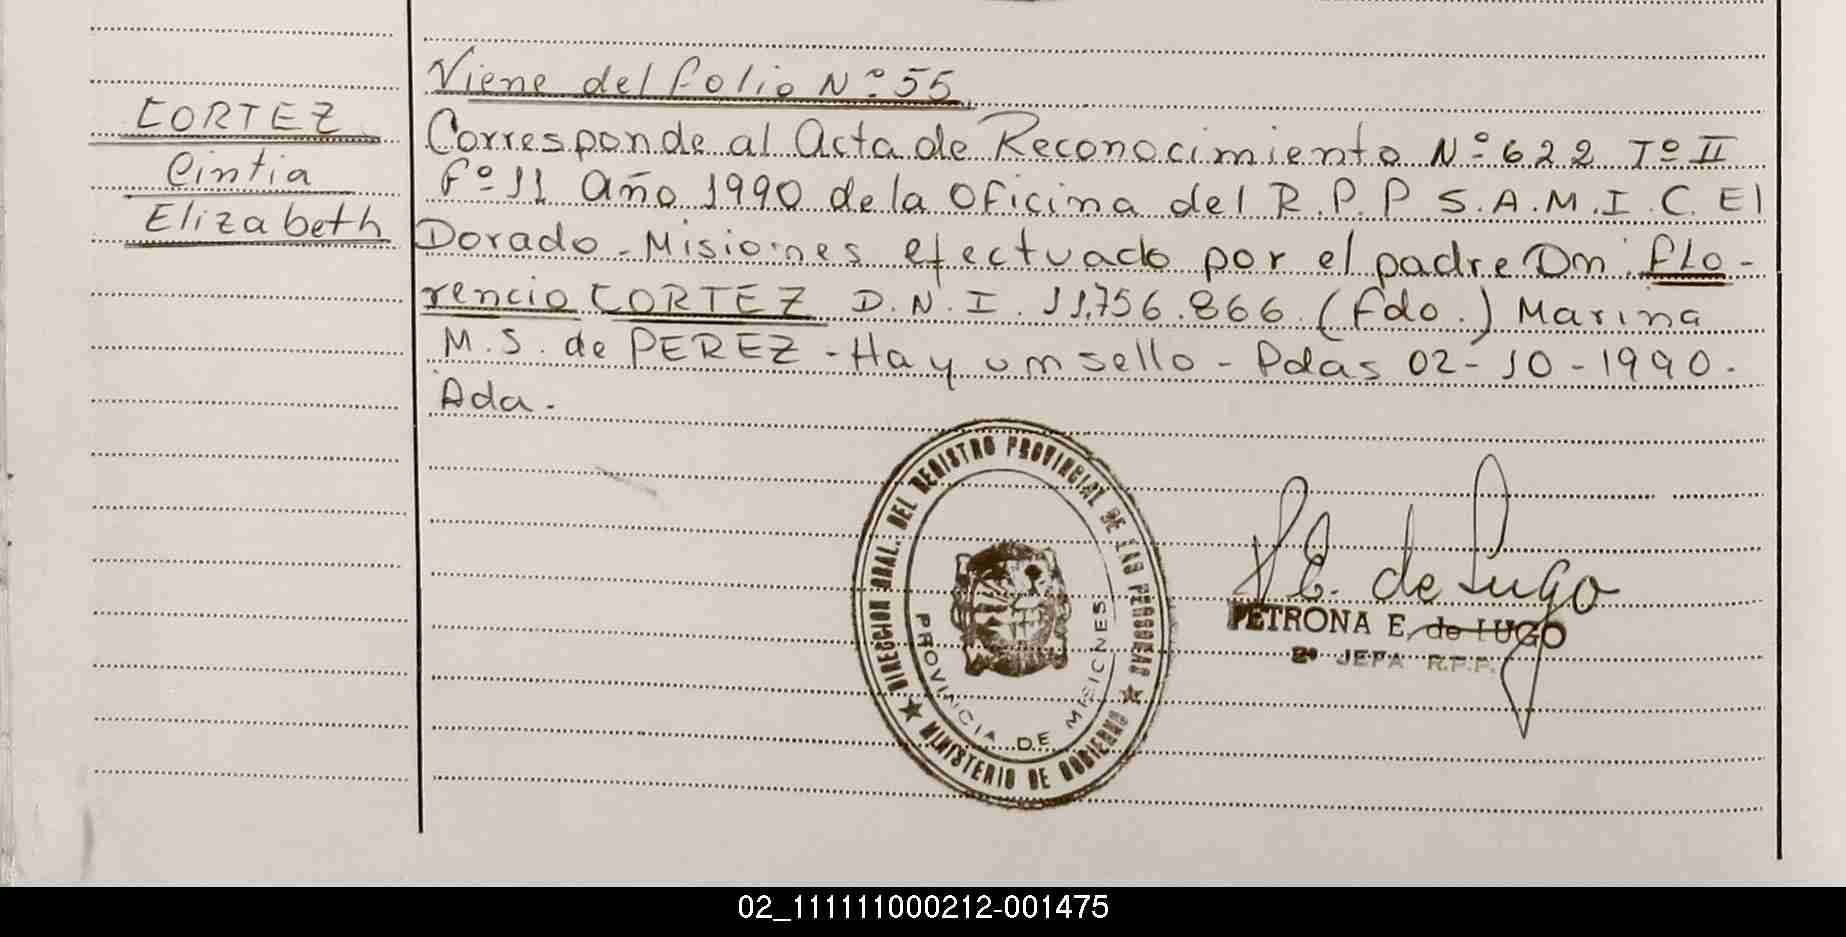 CORTEZ
Cintia
Elizabeth
Viene del folio Nº 55
Corresponde al Acta de Reconocimiento Nº 622 Tº II
Fº 11 Año 1990 de la Oficina del R.P.P S.A.M.I.C. El
Dorado - Misiones efectuado por el padre Dn. Flo-
rencio CORTEZ D.N.I. 11.756.866 (Fdo.) Marina
M.S. de PEREZ - Hay un sello - Pdas 02-10-1990.
Ada.
DIRECCION GRAL. DEL REGISTRO PROVINCIAL DE LAS PERSONAS
MINISTERIO DE GOBIERNO
PROVINCIA DE MISIONES
P E. de Lugo
PETRONA E. de LUGO
2º JEFA R.P.P.
02_111111000212-001475